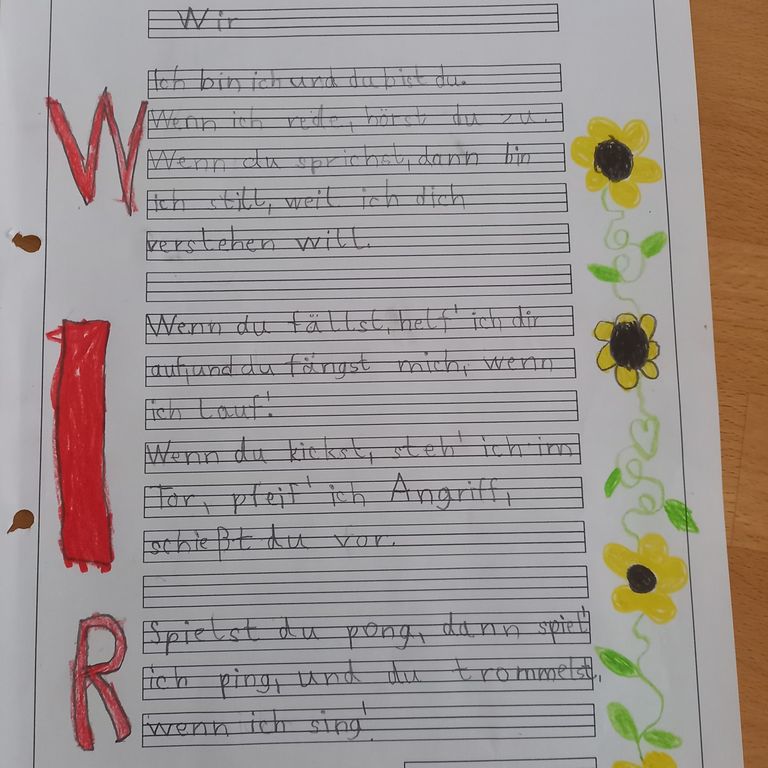 Wir
Ich bin ich und du bist du.
Wenn ich rede, hörst du zu.
Wenn du sprichst, dann bin
ich still, weil ich dich
verstehen will.
Wenn du fällst, helf' ich dir
auf, und du fängst mich, wenn
ich lauf'.
Wenn du kickst, steh' ich im
Tor, pfeif' ich Angriff,
schießt du vor.
Spielst du pong, dann spiel'
ich ping, und du trommelst,
wenn ich sing'.
W
I
R